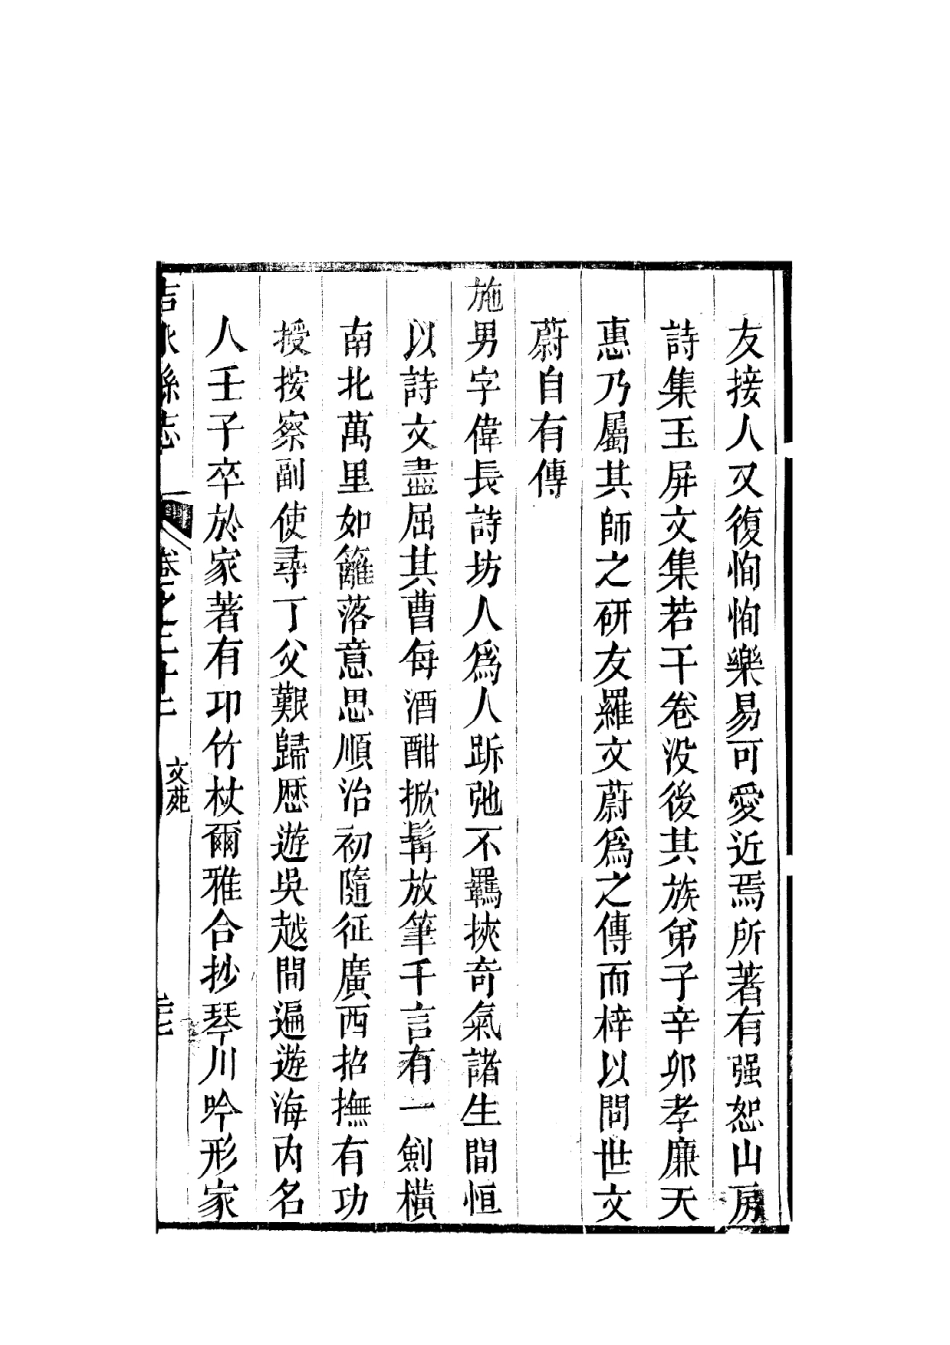 友接人又復恂恂樂易可愛近焉所著有强恕山房
詩集玉屏文集若干卷没後其族弟子辛卯孝廉天
惠乃屬其師之研友羅文蔚爲之傳而梓以問世文
蔚自有傳
施男字偉長詩坊人爲人跅弛不羈挾奇氣諸生間恒
以詩文盡屈其曹每酒酣掀髯放筆千言有一劍橫
南北萬里如籬落意思順治初隨征廣西招撫有功
授按察副使尋丁父艱歸歷遊吳越間遍遊海内名
人壬子卒於家著有卭竹杖爾雅合抄琴川吟形家
吉水縣志
卷之三十二
文苑